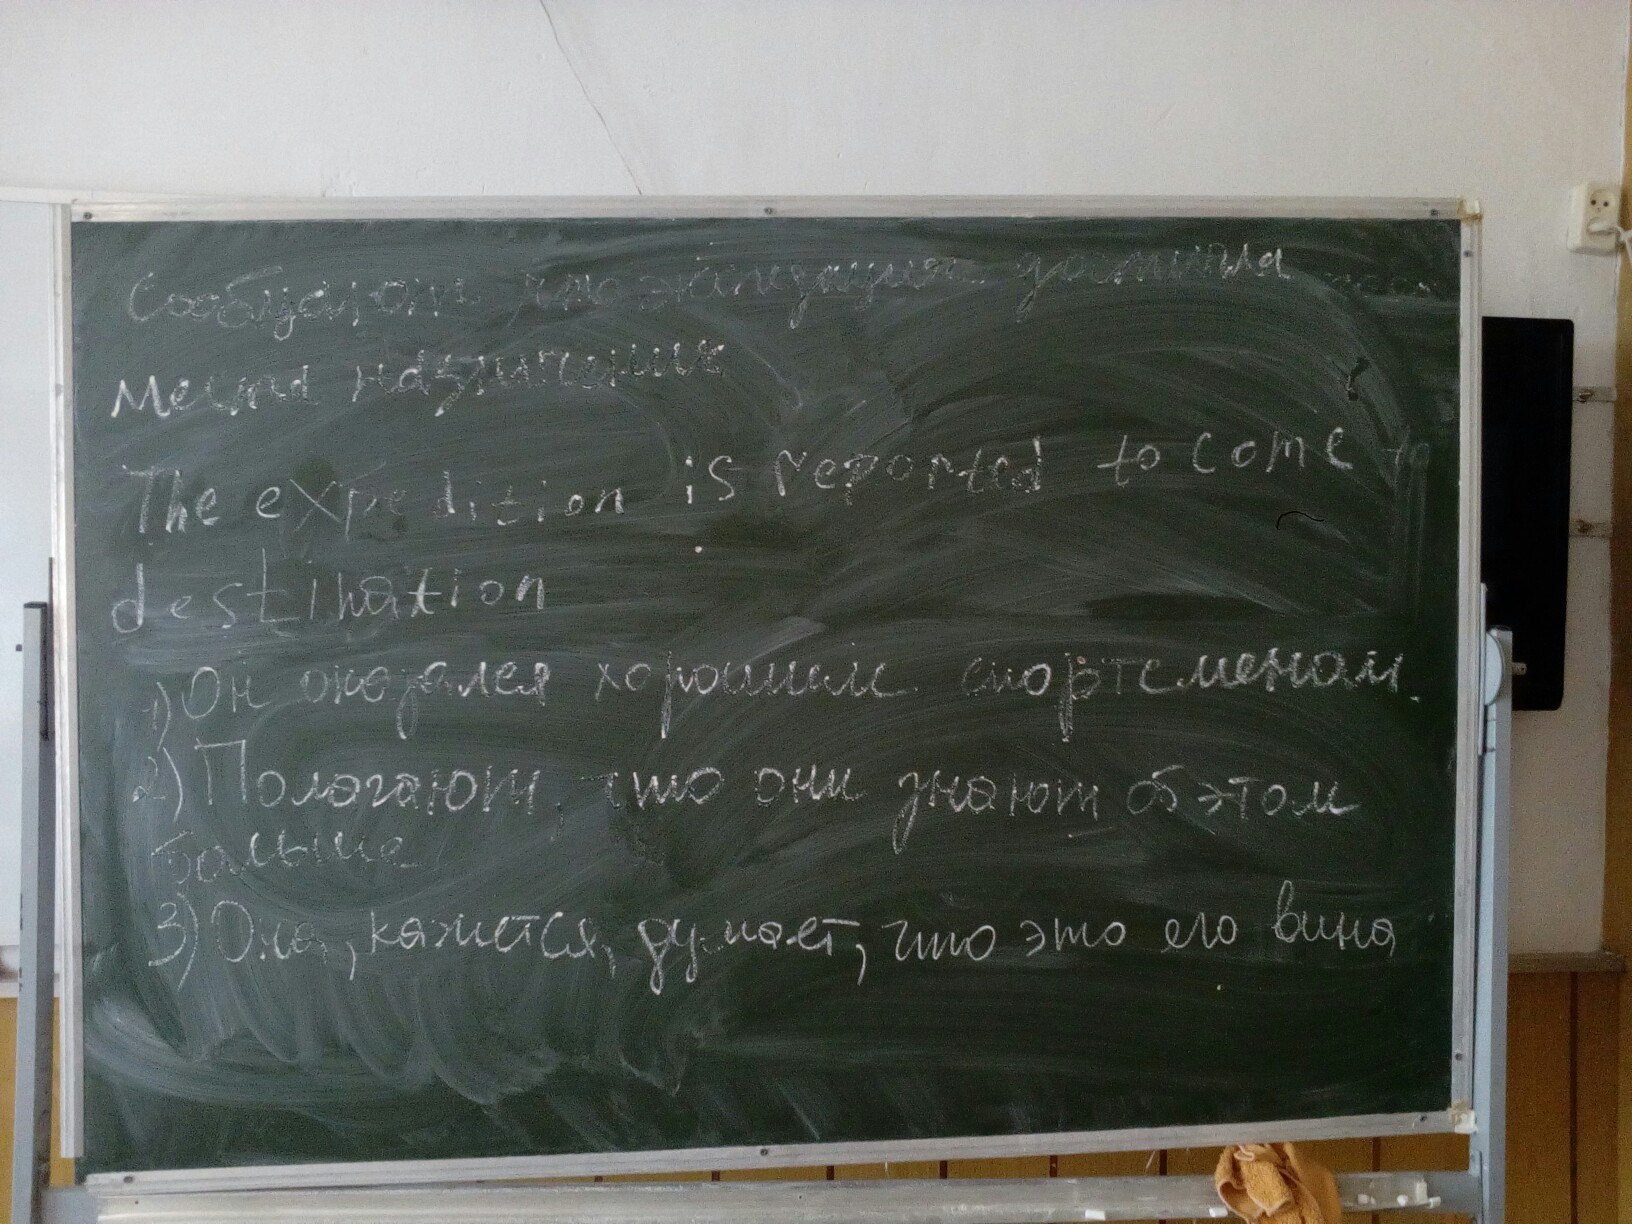 Сообщают что экспедиция достигла
места назначения
The expedition is reported to come to
destination
1) Он оказался хорошим спортсменом.
2) Полагают, что они знают об этом
больше
3) Она, кажется, думает, что это его вина